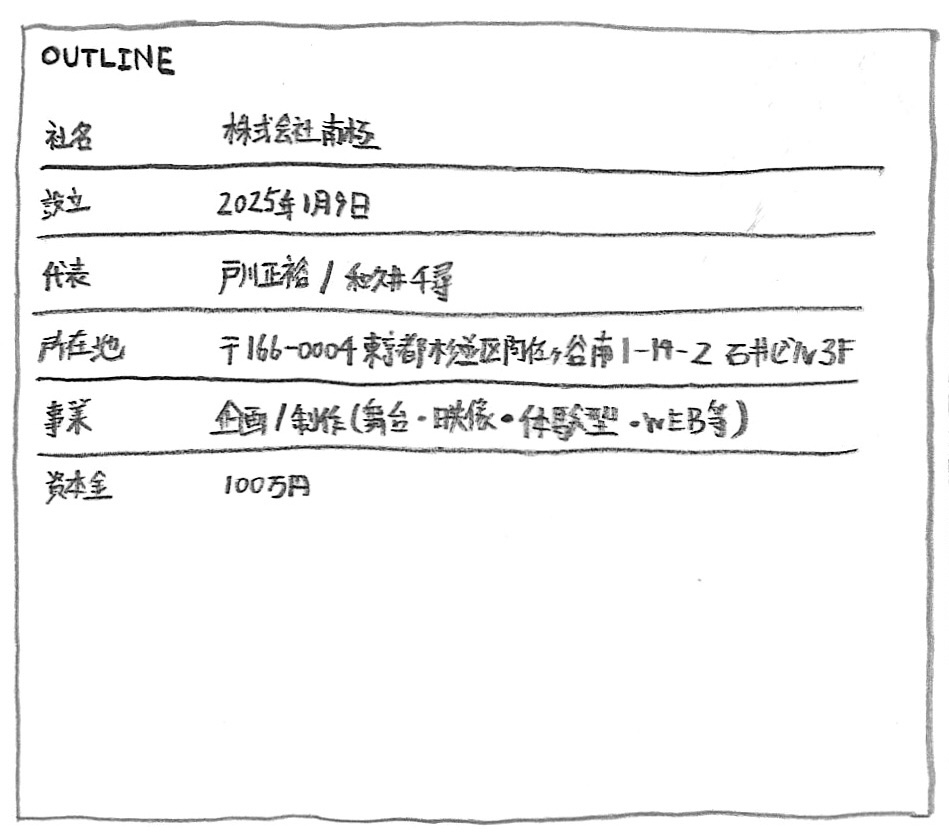 OUTLINE
社名 株式会社南極
設立 2025年1月9日
代表 戸川正裕 / 和久井千尋
所在地 〒166-0004 東京都杉並区阿佐ヶ谷南1-14-2 石井ビル3F
事業 企画/制作(舞台・映像・体験型・WEB等)
資本金 100万円